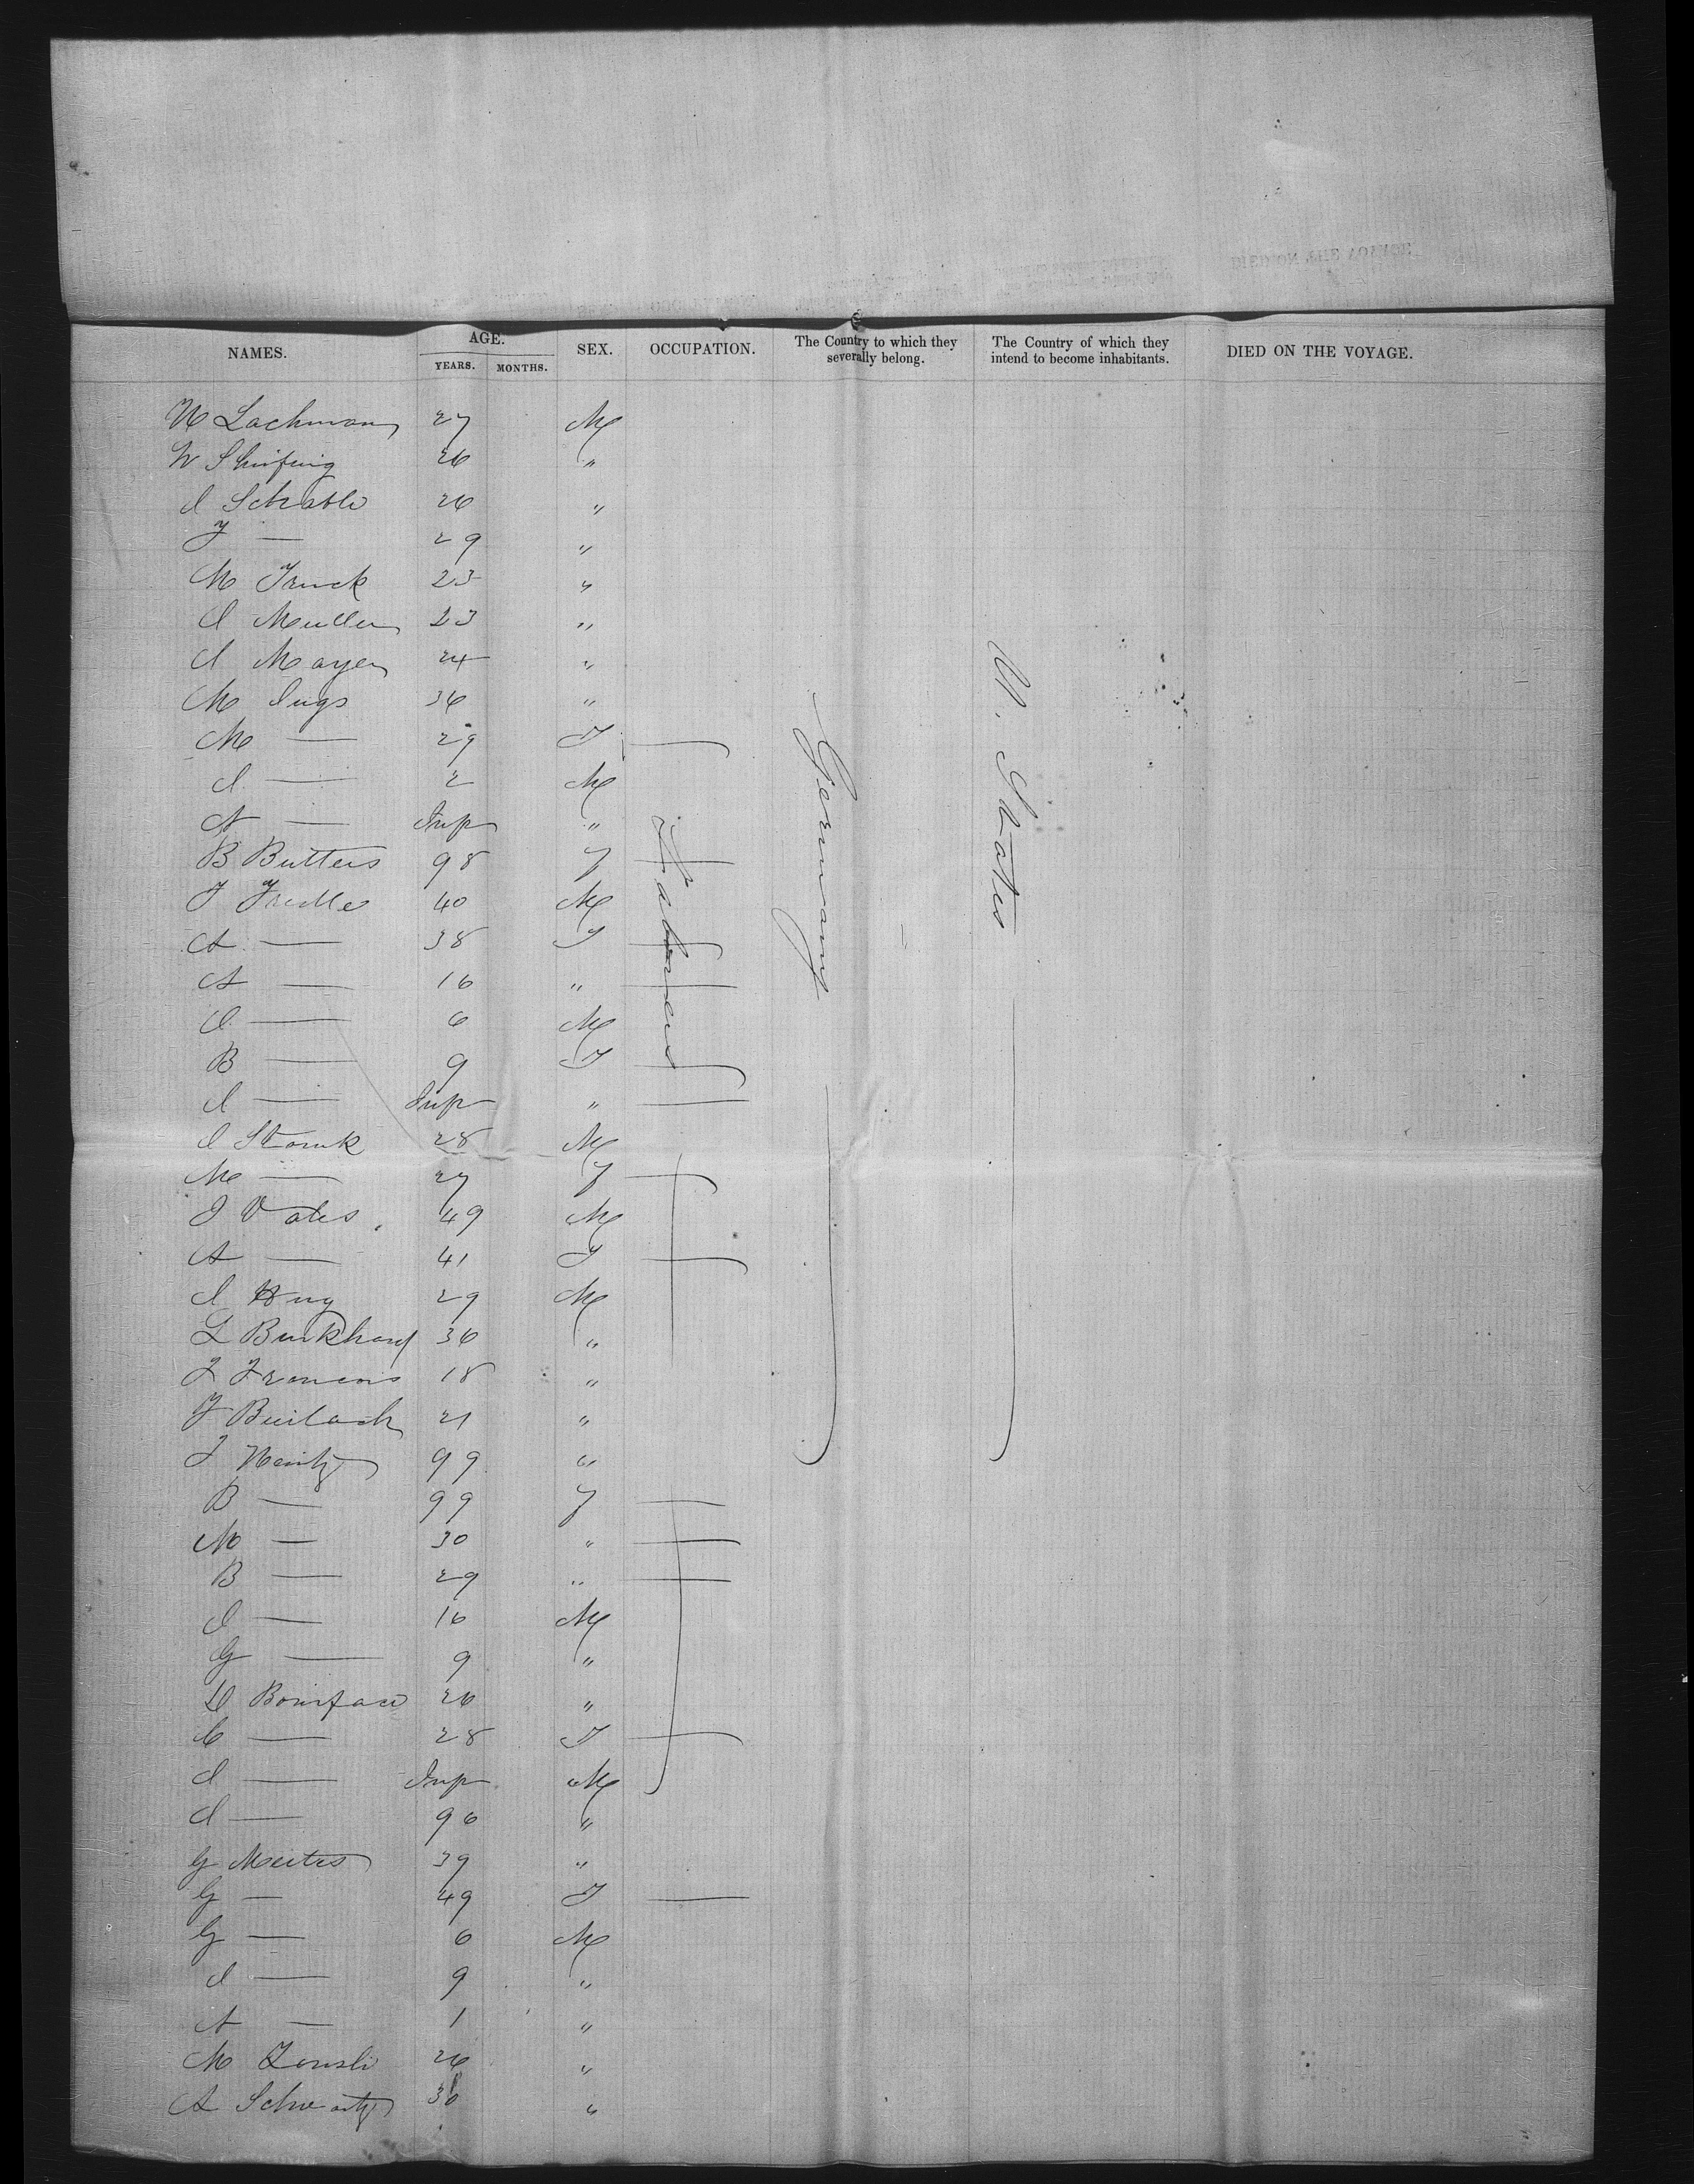 NAMES. AGE. SEX. OCCUPATION. The Country to which they severally belong. The Country of which they intend to become inhabitants. DIED ON THE VOYAGE.
YEARS. MONTHS.
Laborers
Germany
U. States
Lachman 27 M
W 26 "
I Schable 26 "
— 29 "
M Truck 23 "
I Muller 23 "
I Mayer 24 "
M 36 "
M — 29 F —
I — 2 M
A — Inf "
B Butters 98 F —
F 40 M
A — 38 F —
A — 16 " —
— 6 M
B — 9 F —
I — Inf " —
I Stamk 28 M
M — 27 F —
J Vales 49 M
A — 41 F —
I Hug 29 M
L Burkhard 36 "
F Francois 18 "
F 21 "
99 "
B — 99 F —
M — 30 " —
B — 29 " —
I — 16 M
G — 9 "
Boniface 26 "
C — 28 F —
I — Inf M
I — 96 "
G Meites 39 "
G — 49 F —
G — 6 M
I — 9 "
A — 1 "
M 26 "
A Schwartz 30 "